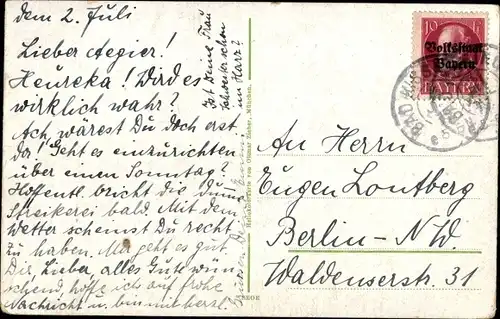 den 2. Juli
Lieber Aegier!
Heureka! Wird es
wirklich wahr?
Ach, wärest Du doch erst
da! Geht es einzurichten
über einen Sonntag?
Hoffentl. bricht die dumme
Streikerei bald. Mit dem
Wetter scheinst Du recht
zu haben. Mir geht es gut.
Dir, Lieber, alles Gute wün
schend, hoffe ich auf frohe
Nachricht u. bin mit herzl.
Ist Deine Frau
schon
im Harz?
Verlag von Ottmar Zieher, München.
10
Volksstaat
Bayern
BAYERN
BAD
An Herrn
Eugen Lontberg
Berlin-N.W.
Waldenserstr. 31